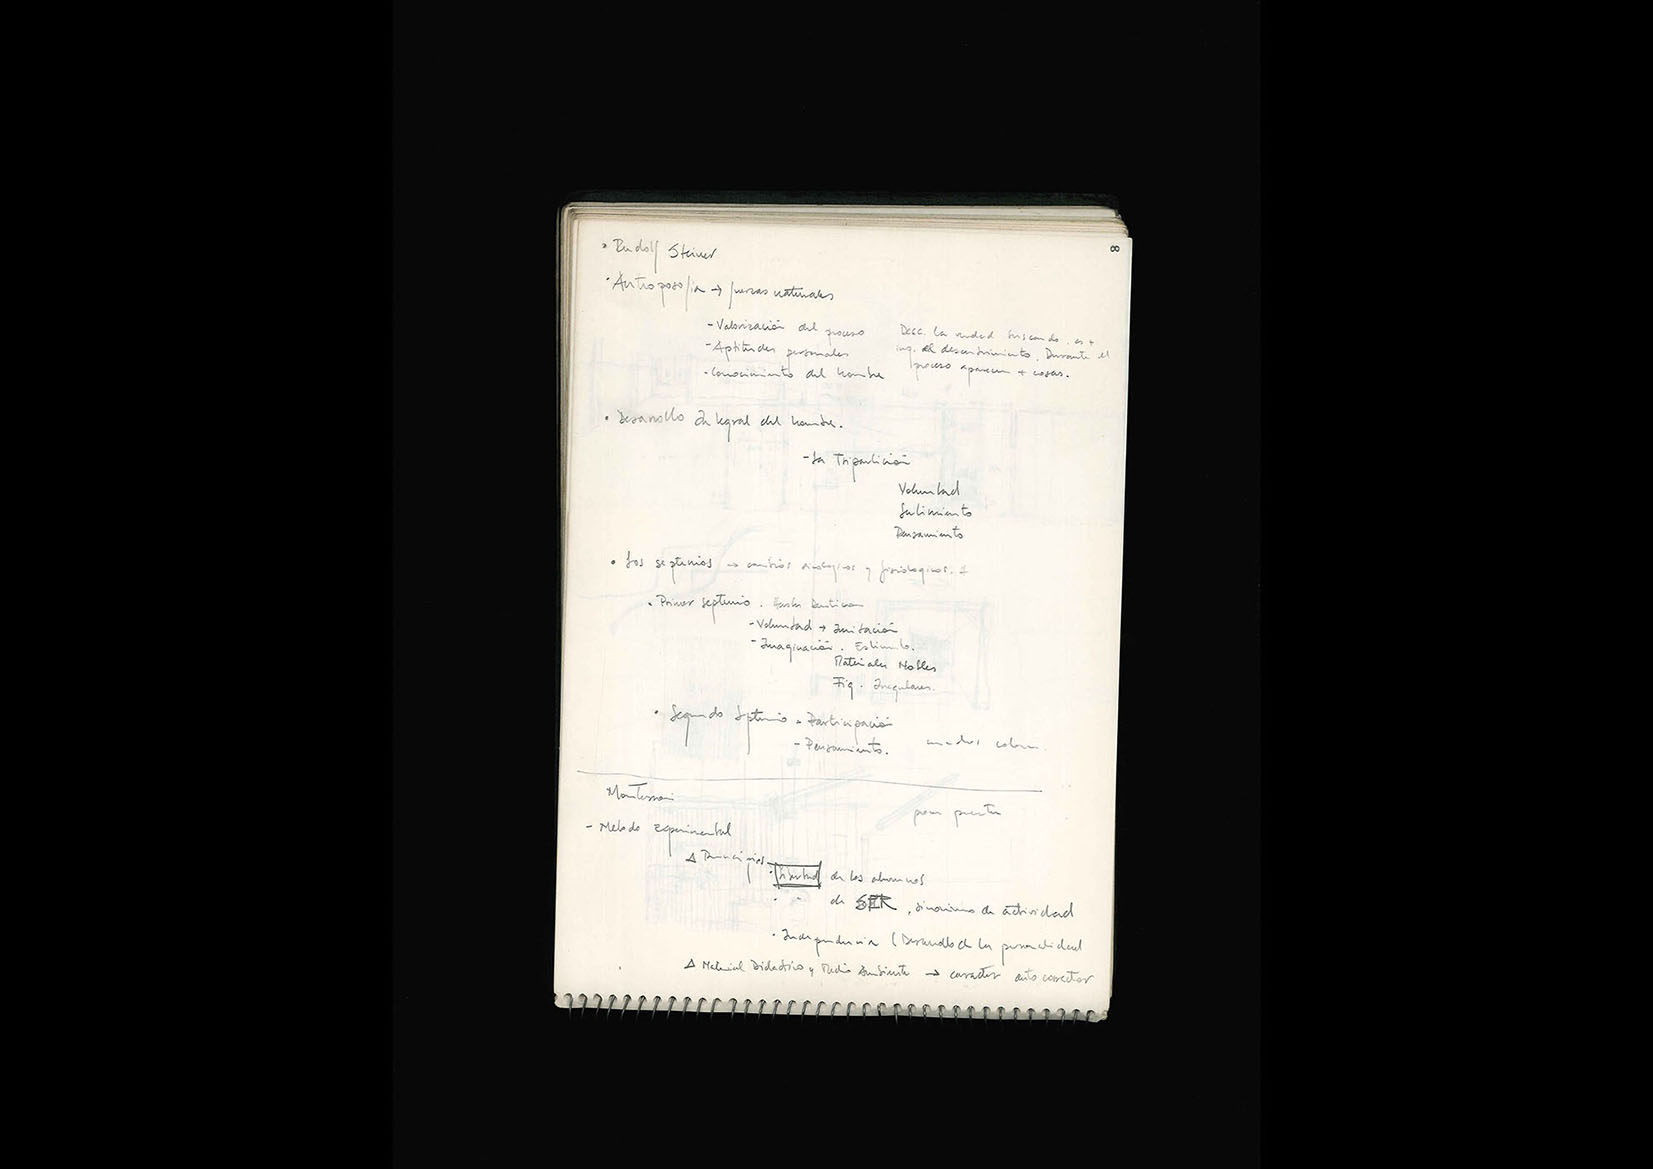 8
• Rudolf Steiner
• Antroposofia → fuerzas naturales
- Valorización del proceso
- Aptitudes personales
- Conocimiento del hombre
Desc. la verdad buscando. es +
imp. el descubrimiento. Durante el
proceso aparecen + cosas.
• Desarrollo Integral del hombre.
- La Tripartición
Voluntad
Sentimiento
Pensamiento
• Los septenios → cambios sicologicos y fisiologicos.
• Primer septenio. Hasta Denticion
- Voluntad → Imitación
- Imaginación. Estimulo.
Materiales Nobles
Fig. Irregulares.
• Segundo Septenio • Participación
- Pensamiento.
Montessori
- Metodo Experimental
△ Principios
• Libertad de los alumnos
• " de SER, sinonimo de actividad
• Independencia (Desarrollo de la personalidad
△ Material Didactico y Medio Ambiente → caracter auto corrector